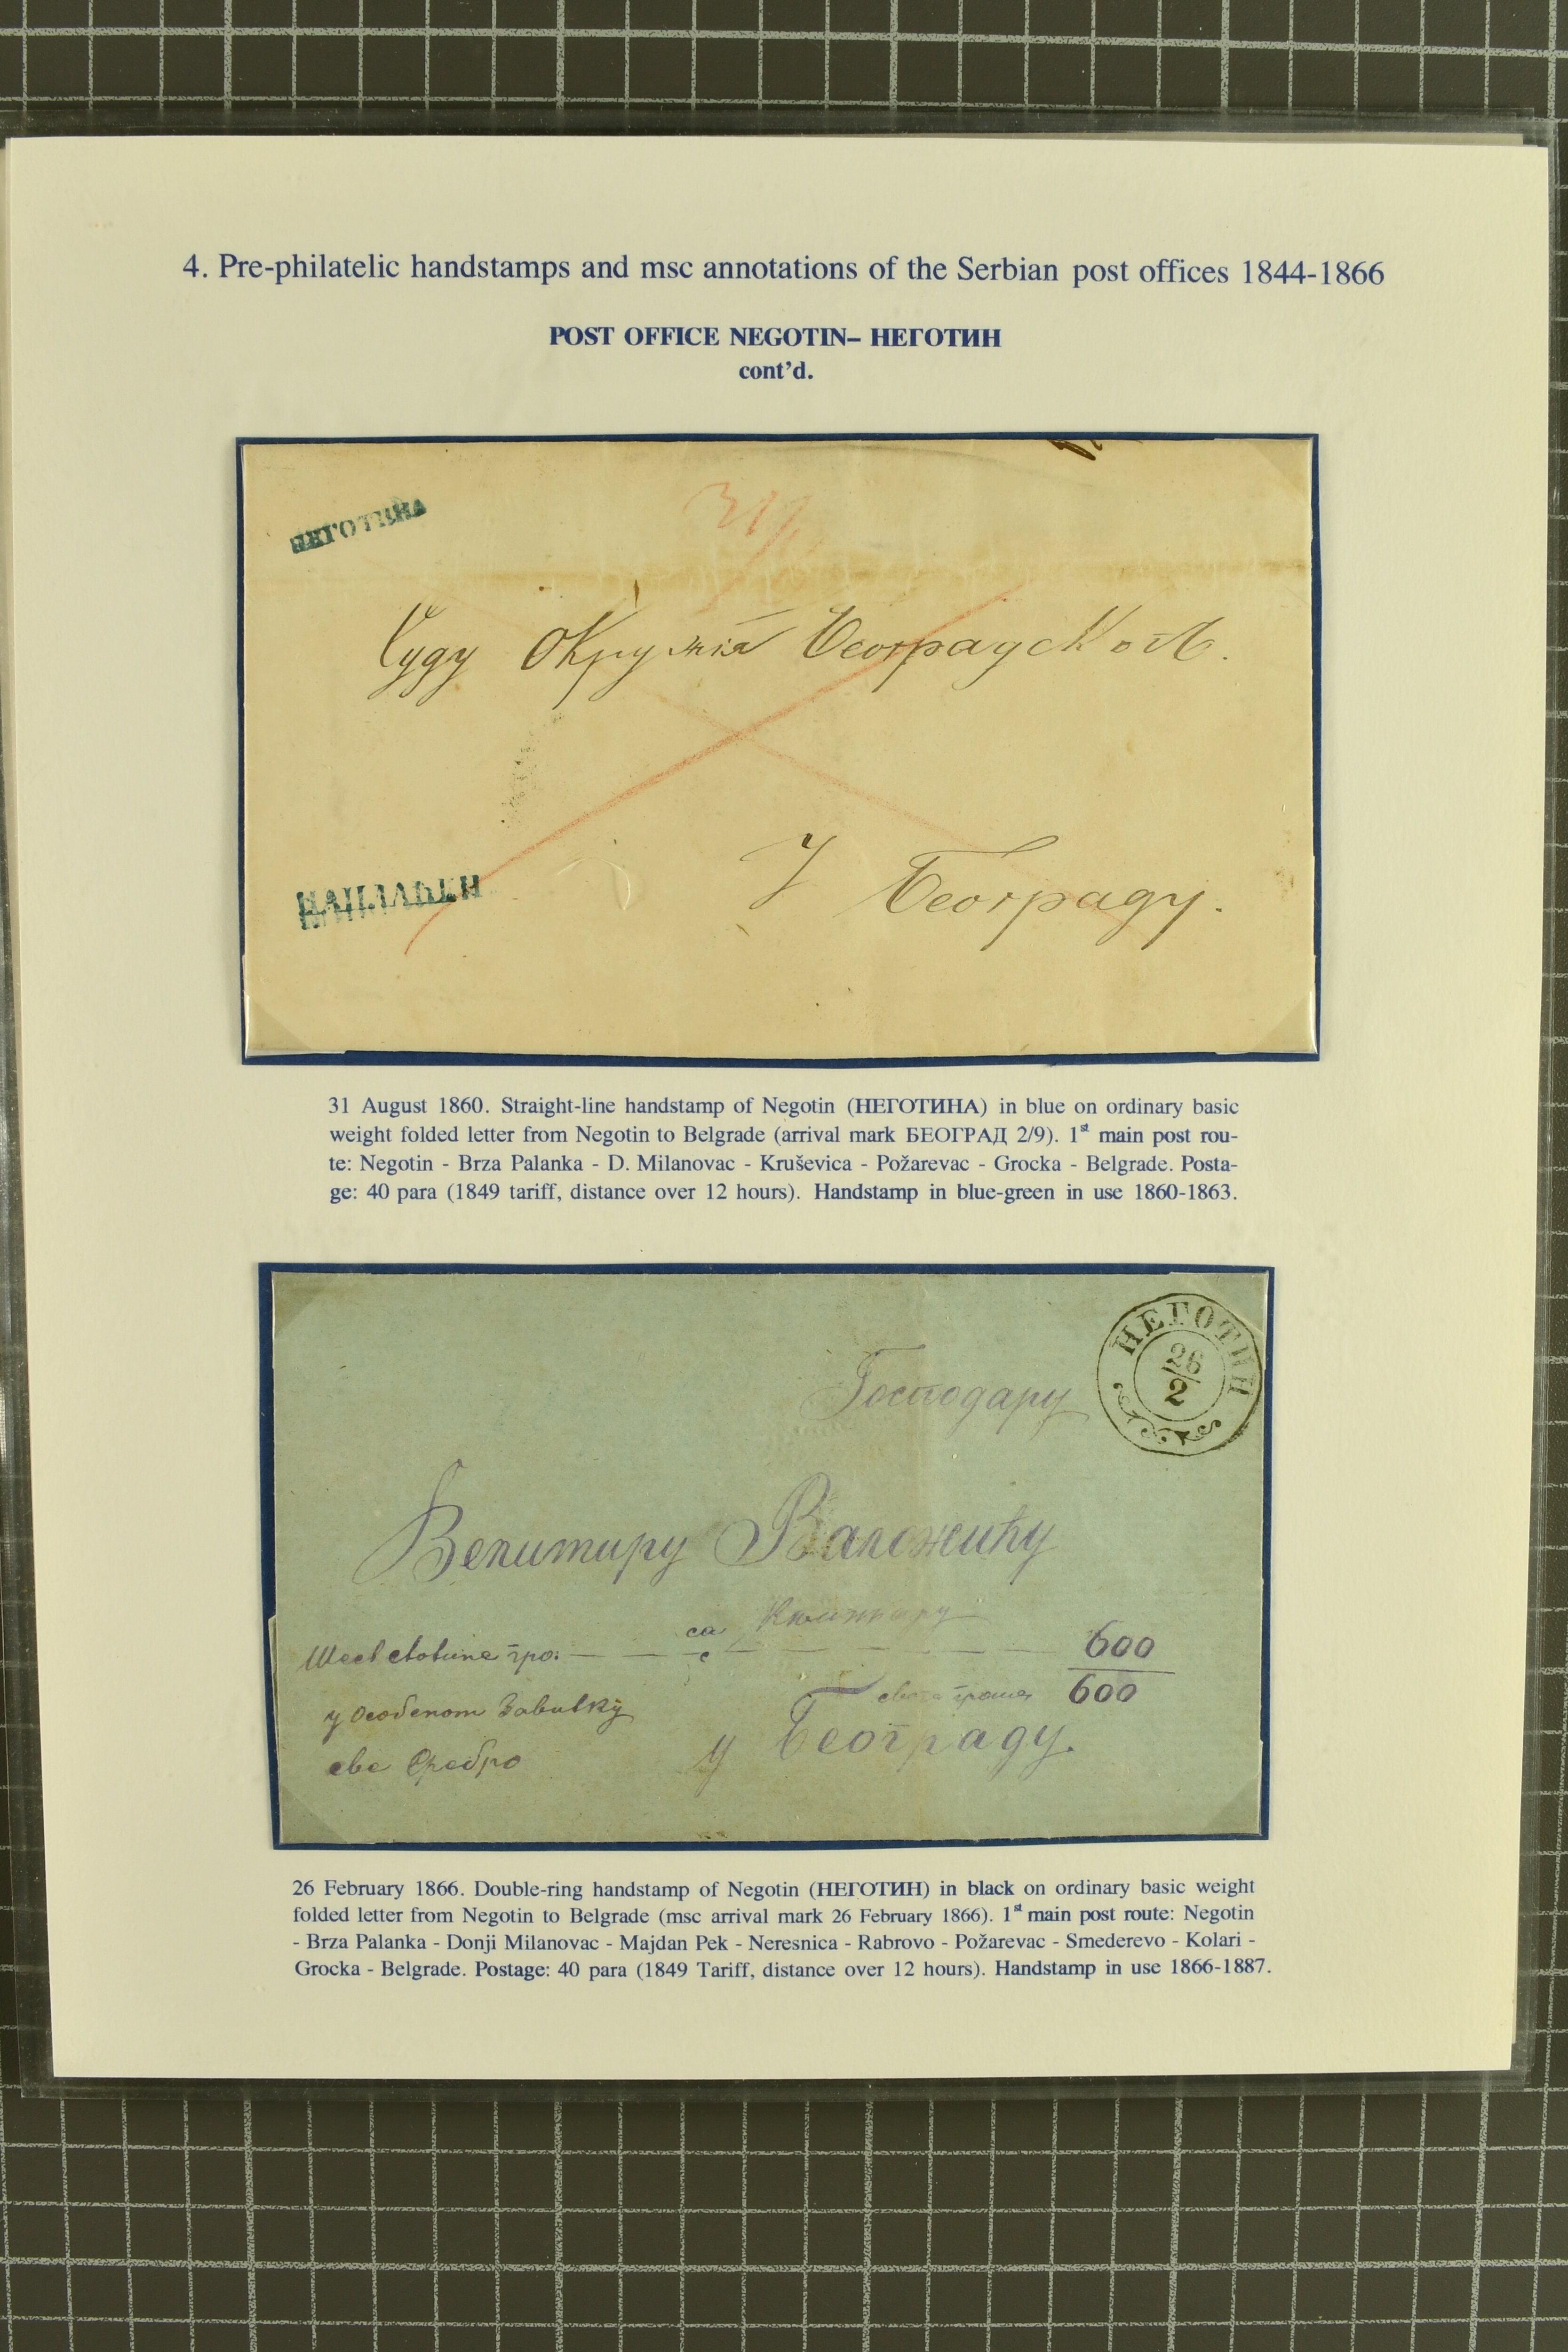 4. Pre-philatelic handstamps and msc annotations of the Serbian post offices 1844-1866
POST OFFICE NEGOTIN– НЕГОТИН
cont'd.
НЕГОТИНА
31/
Суду Окружія Београдског.
НАПЛАЂЕН
У Београду.
31 August 1860. Straight-line handstamp of Negotin (НЕГОТИНА) in blue on ordinary basic
weight folded letter from Negotin to Belgrade (arrival mark БЕОГРАД 2/9). 1st main post rou-
te: Negotin - Brza Palanka - D. Milanovac - Kruševica - Požarevac - Grocka - Belgrade. Posta-
ge: 40 para (1849 tariff, distance over 12 hours). Handstamp in blue-green in use 1860-1863.
НЕГОТИН
26
2
Господару
Велимиру
са
Шест стотине гро: 600
600
у особеном Завитку
све Сребро
у Београду.
26 February 1866. Double-ring handstamp of Negotin (НЕГОТИН) in black on ordinary basic weight
folded letter from Negotin to Belgrade (msc arrival mark 26 February 1866). 1st main post route: Negotin
- Brza Palanka - Donji Milanovac - Majdan Pek - Neresnica - Rabrovo - Požarevac - Smederevo - Kolari -
Grocka - Belgrade. Postage: 40 para (1849 Tariff, distance over 12 hours). Handstamp in use 1866-1887.